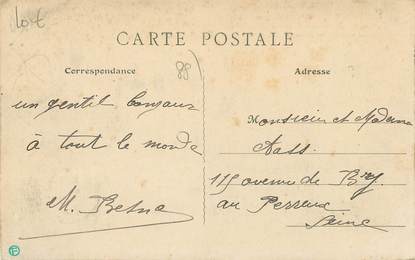 10 €
CARTE POSTALE
Correspondance
88
Adresse
un gentil bonjour
à tout le monde
Monsieur et Madame
115 avenue de Bry
au Perreux
Seine